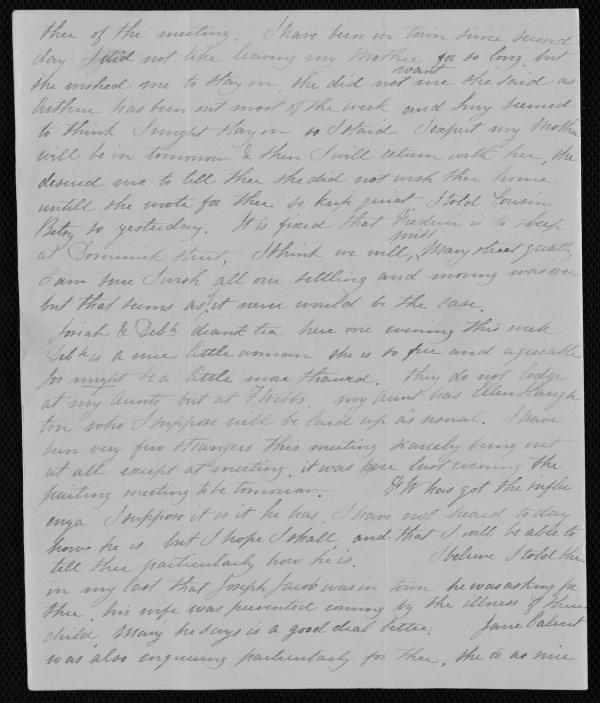 thee of the meeting. I have been in town since second
day I did not like leaving my Mother for so long, but
she wished me to stay in, she did not want me she said as
Arthur has been out most of the week and Lucy seemed
to think I might stay in so I staid. I expect my Mother
will be in tomorrow & then I will return with her, she
desired me to tell thee she did not wish thee home
untill she wrote for thee so keep quiet. I told Cousin
Betsy so yesterday. It is fixed that is to sleep
at Dominick Street, I think we will miss Mary street greatly
I am sure I wish all our settling and moving was over
but that seems as if it never would be the case.
Josiah & Debh drank tea here one evening this week
Debh is a nice little woman she is so free and agreeable
for might be a little more . They do not lodge
at my Aunts but at . my aunt has Ellen Haugh
ton who I suppose will be laid up as usual. I have
seen very few strangers this meeting scarcely being out
at all except at meeting, it was over last evening the
parting meeting to be tomorrow. HW has got the influ
enza I suppose it is it he has, I have not heard to day
how he is but I hope I shall and that I will be able to
tell thee particularly how he is. I believe I told thee
in my last that Joseph Jacob was in town he was asking for
thee, his wife was prevented coming by the illness of their
child, Mary he says is a good deal better. Jane
was also enquiring particularly for thee, she is as nice